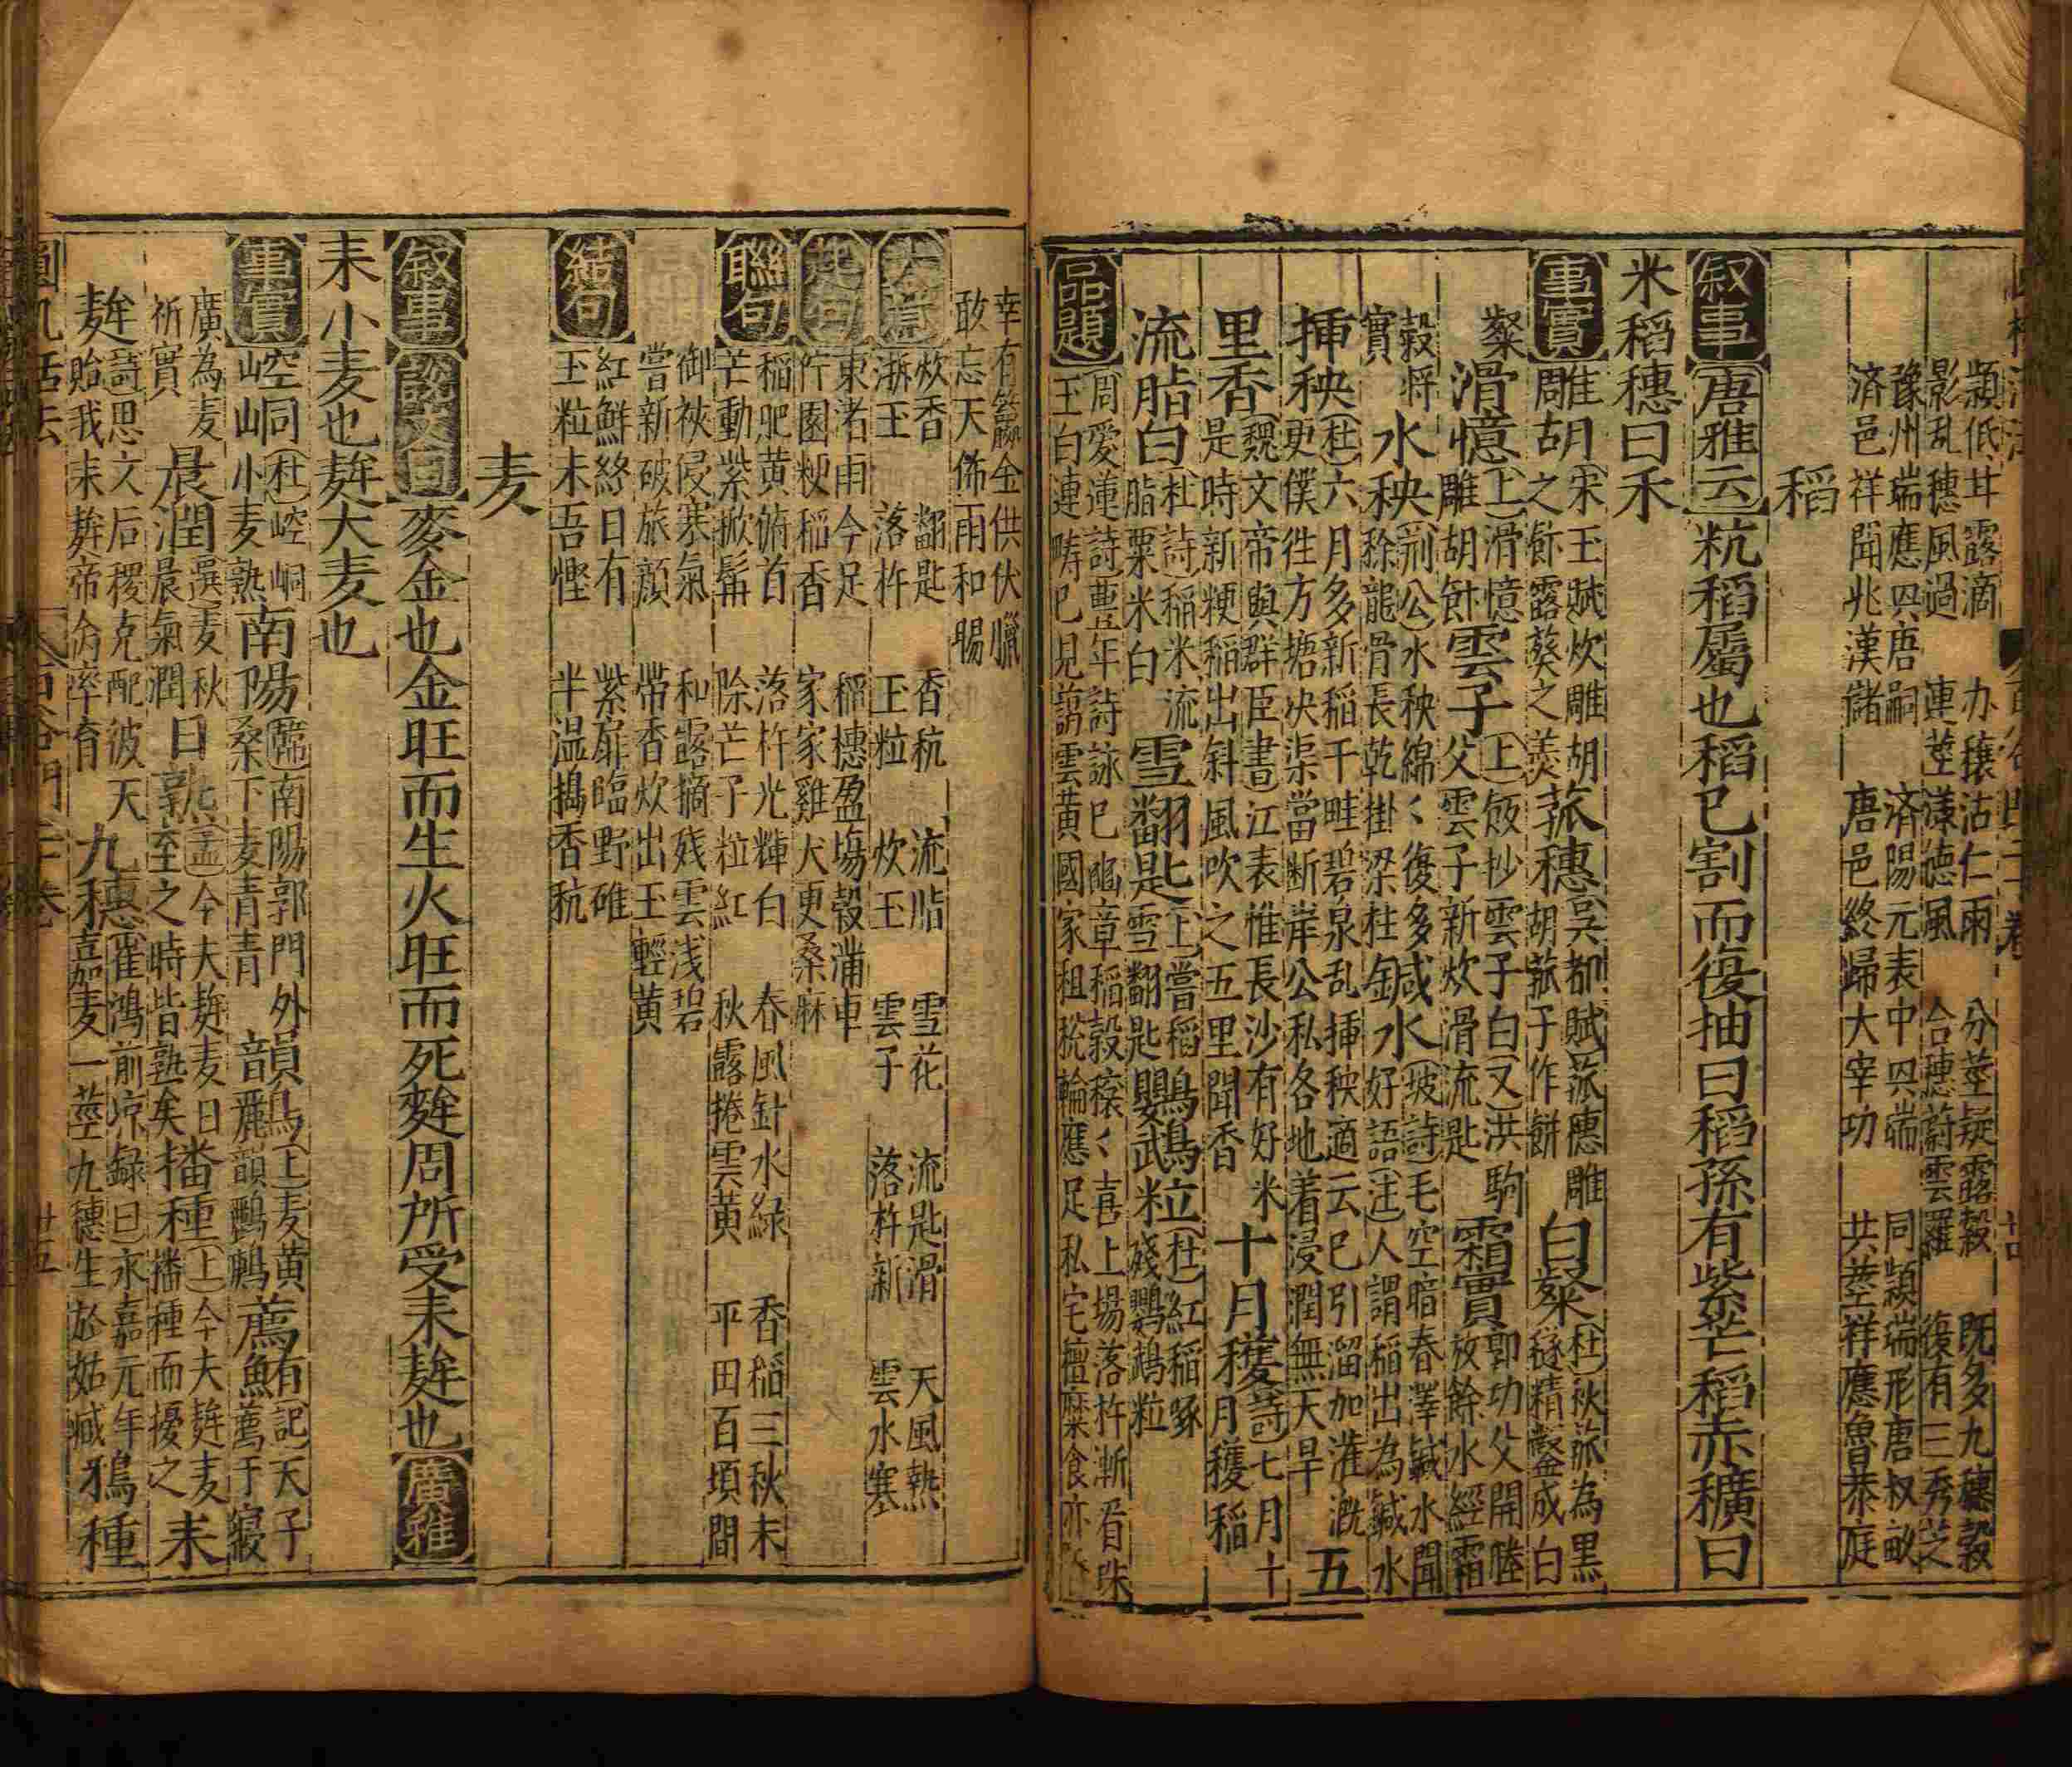 穎低甘露滴 办穰沾仁雨 分莖疑露穀 既多九穗穀
影乱穗風過 連莖漾德風 合穗蔚雲羅 復有三秀芝
豫州端應㒷唐嗣 済陽元表中㒷端 同穎端形唐叔畝
済邑祥聞兆漢儲 唐邑終歸大宰功 共莖祥應魯恭庭
稻
叙事 唐雅云 秔稻屬也稻已割而復抽曰稻孫有紫芒稻赤穬曰
米稻穗曰禾
事實 雕胡 宋玉賦炊雕胡之飯露葵之羹 菰穗 吳都賦菰穗雕胡菰子作餅 白粲 杜秋菰為黑穟精鑿成白
粲 滑憶 上滑憶雕胡飰 雲子 上飯抄雲子白又洪駒父雲子新炊滑流匙 霜實 郭功父開塍放餘水經霜
穀将實 水秧 荊公水秧綿〻復多稌龍骨長乾掛梁柱 鹹水 坡詩毛空暗春澤鹹水聞好語注人謂稻出為鹹水
挿秧 杜六月多新稻千畦碧泉乱挿秧適云已引溜加灌溉更僕徃方塘决渠當断岸公私各地着浸潤無天旱 五
里香 魏文帝與群臣書江表惟長沙有好米是時新粳稻出斜風吹之五里聞香 十月穫 詩七月十月穫稻
流脂白 杜詩稻米流脂粟米白 雪翻匙 上嘗稻雪翻匙 鸚鵡粒 杜紅稻啄殘鸚鵡粒
品題 周愛蓮詩豊年詩詠已
王白連疇已見藹雲黄國家租稅輪應足私宅饘糜食亦
幸有籝金供伏臘
敢忘天佈雨和暘
大意 炊香 翻匙 香秔 流脂 雪花 流匙滑 天風熱
浙玉 落杵 玉粒 炊玉 雲子 落杵新 雲水寒
起句 東渚雨今足 稲穗盈塲穀滿車
佇園粳稻香 家家雞犬更桑麻
聯句 稻肥黄俯首 落杵光輝白 春風針水緑 香稲三秋末
芒動紫掀髯 除芒子粒紅 秋露捲雲黄 平田百頃間
御裌侵寒氣 和露摘殘雲浅碧
嘗新破旅顔 帶香炊出玉輕黄
結句 紅鮮終日有 紫扉臨野碓
玉粒未吾慳 半温搗香秔
麦
叙事 說文曰 麥金也金旺而生火旺而死麰周所受耒麰也 廣雅
耒小麦也麰大麦也
事實 崆峒 杜崆峒小麦熟 南陽 席南陽郭門外桑下麦青青 韻鳥 上麦黄韻鸝鶊 薦鮪 記天子薦鮪于寢
廣為麦祈實 晨潤 選麦秋晨氣潤 日熟 孟今夫麰麦日至之時皆熟矣 播種 上今夫麰麦播種而擾之 耒
麰 詩思文后稷克配彼天貽我耒麰帝命率育 九穗 崔鴻前凉録曰永嘉元年嘉麦一莖九穗生於姑臧 鴉種
圓机活法 百谷門 二十卷 廿五